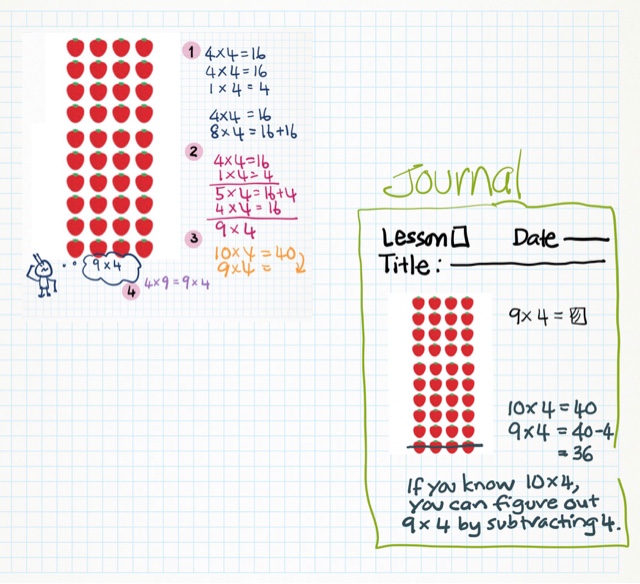 1 4×4=16
4×4=16
1×4=4
4×4=16
8×4=16+16
2
4×4=16
1×4=4
5×4=16+4
4×4=16
9×4
3
10×4=40
9×4=
9×4
4 4×9=9×4
Journal
Lesson Date
Title:
9×4=
10×4=40
9×4=40-4
=36
If you know 10×4,
you can figure out
9×4 by subtracting 4.